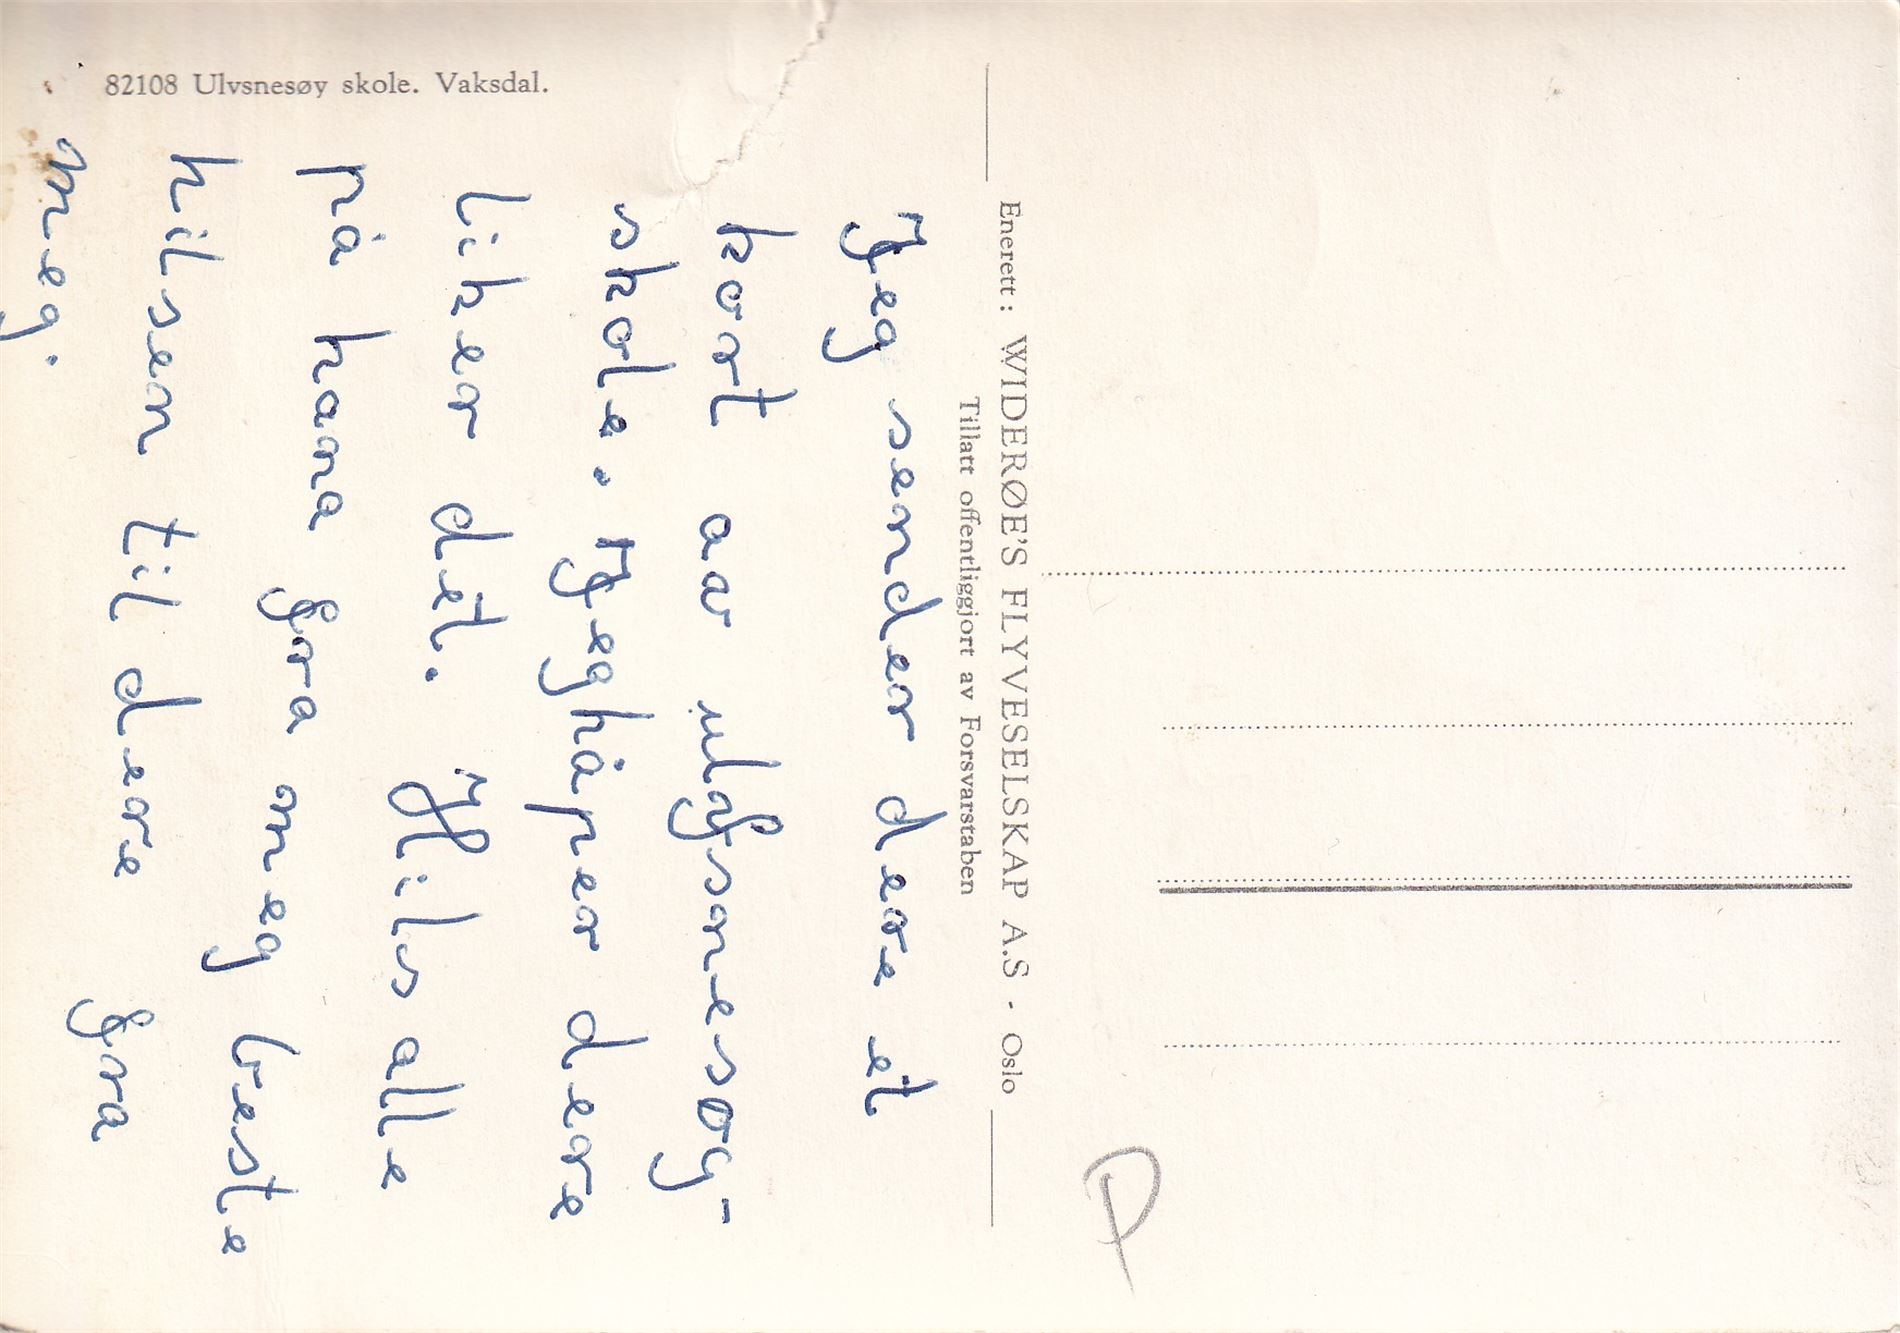 82108 Ulvsnesøy skole. Vaksdal.
Enerett: WIDERØE'S FLYVESELSKAP A.S - Oslo
Tillatt offentliggjort av Forsvarstaben
Jeg sender dere et
kort av ulfsnesøy-
skole. Jeg håper dere
liker det. Hils alle
på hana fra meg beste
hilsen til dere fra
meg.
P